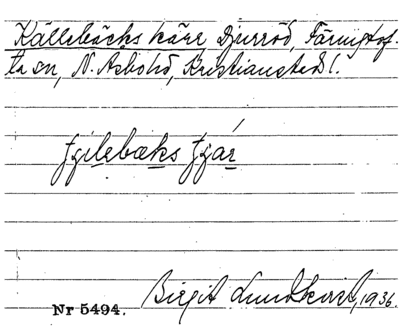 Källebäcks kärr Djurröd, Färingtof-
ta sn, N. Åsbohd, Kristianstads l.
Nr 5494. Birgit Lundkvist, 1936.